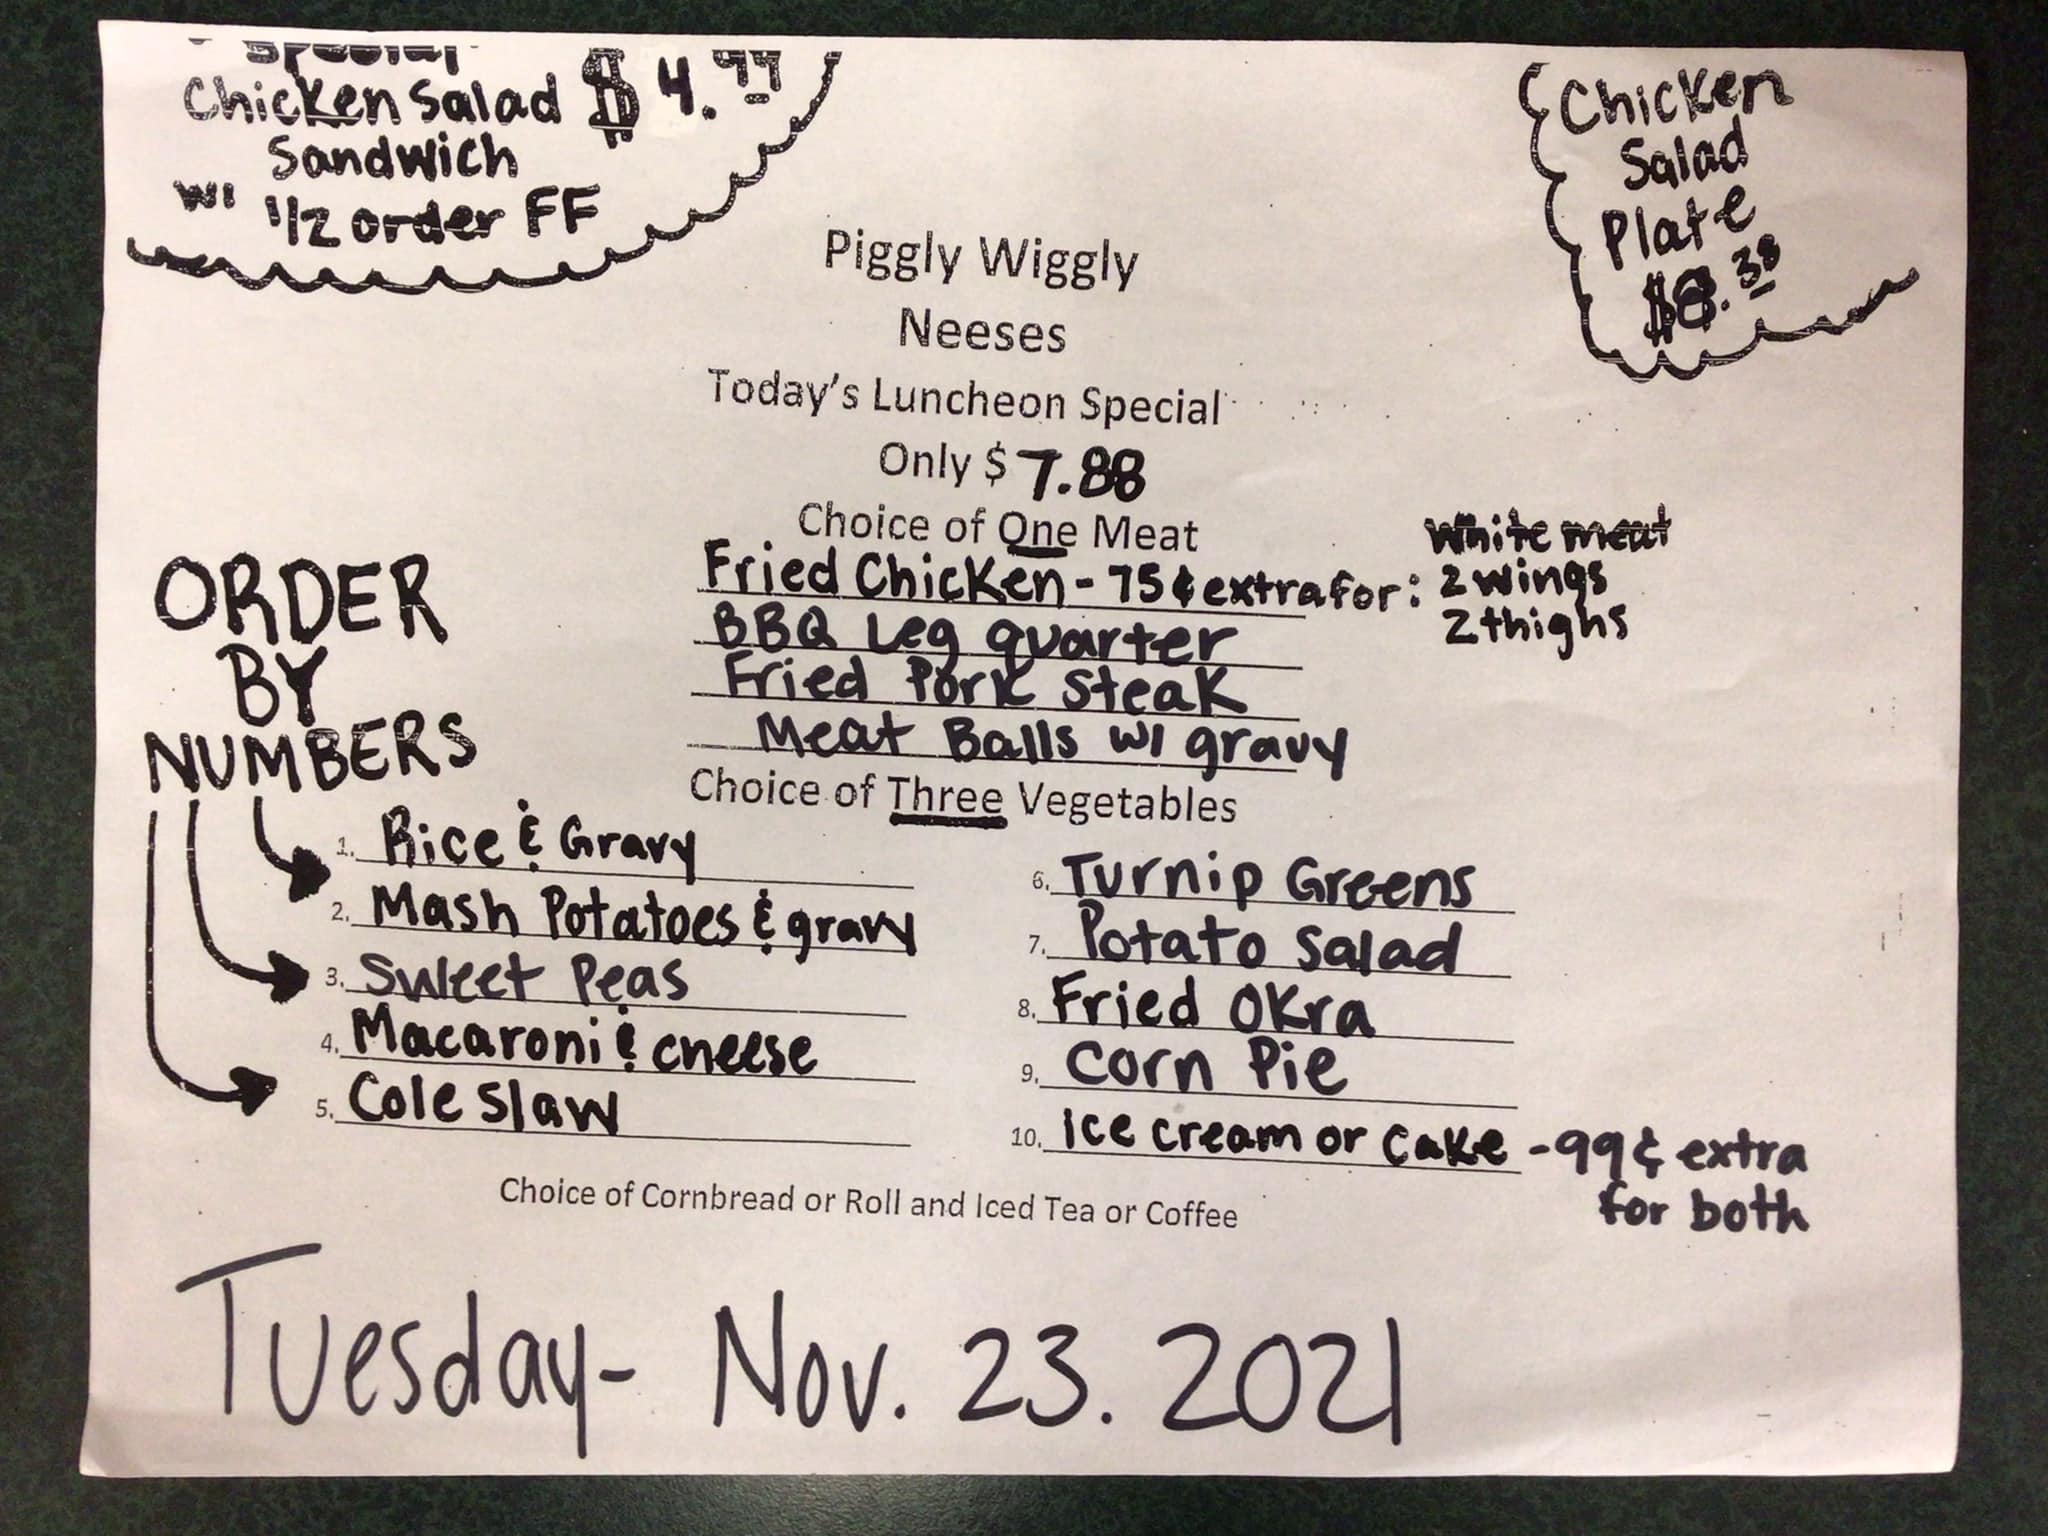 Special
Chicken Salad $4.99
Sandwich
w/ 1/2 order FF
Chicken
Salad
Plate
$8.38
Piggly Wiggly
Neeses
Today's Luncheon Special
Only $ 7.88
Choice of One Meat
Fried Chicken - 75¢ extra for: White meat
2 wings
2 thighs
BBQ Leg quarter
Fried Pork Steak
Meat Balls w/ gravy
ORDER
BY
NUMBERS
Choice of Three Vegetables
1. Rice & Gravy
2. Mash Potatoes & gravy
3. Sweet Peas
4. Macaroni & cheese
5. Cole slaw
6. Turnip Greens
7. Potato Salad
8. Fried Okra
9. Corn Pie
10. Ice cream or Cake - 99¢ extra
for both
Choice of Cornbread or Roll and Iced Tea or Coffee
Tuesday - Nov. 23. 2021